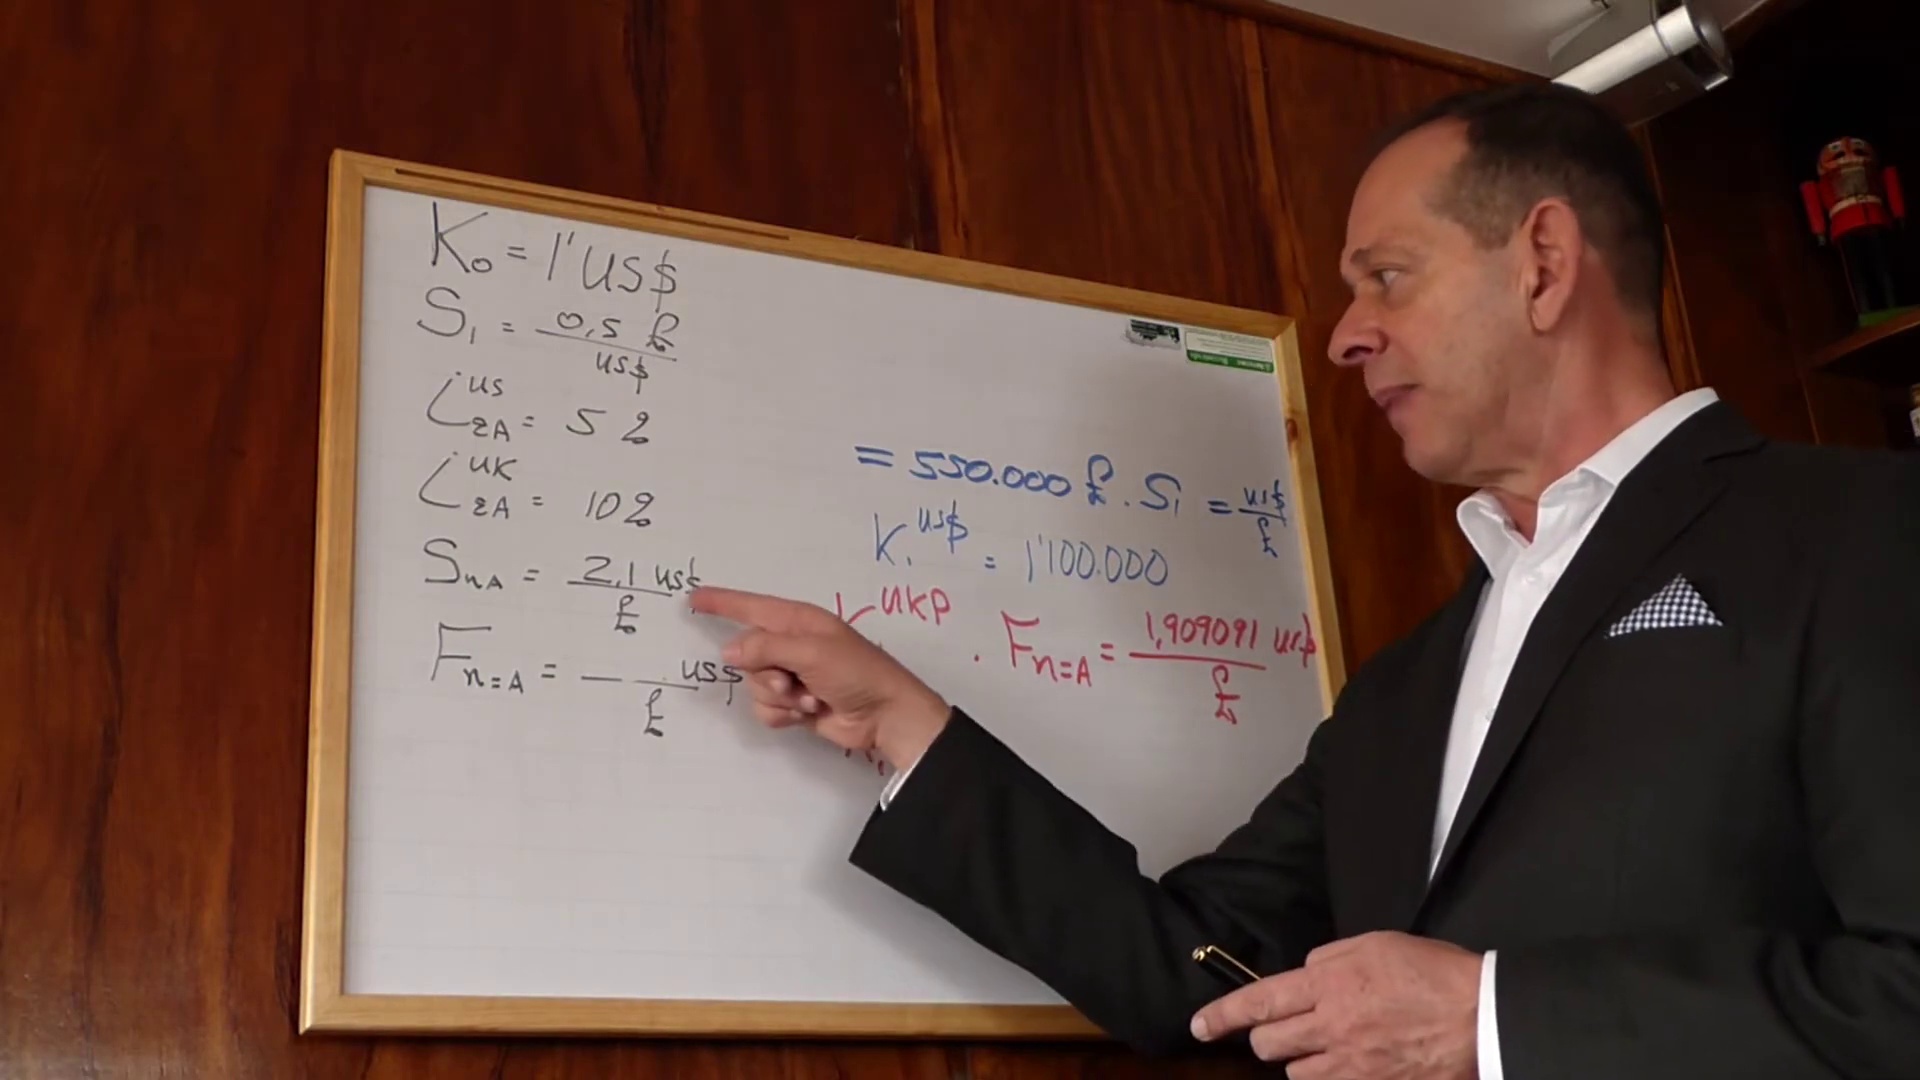 K₀ = 1'US$
S₁ = 0,5 £
US$
i US
EA = 5 %
i UK
EA = 10 %
SnA = 2,1 US$
£
Fn=A = US$
£
= 550.000 £ . S₁ = US$
£
K₁ US$ = 1'100.000
UKP . Fn=A = 1,909091 US$
£